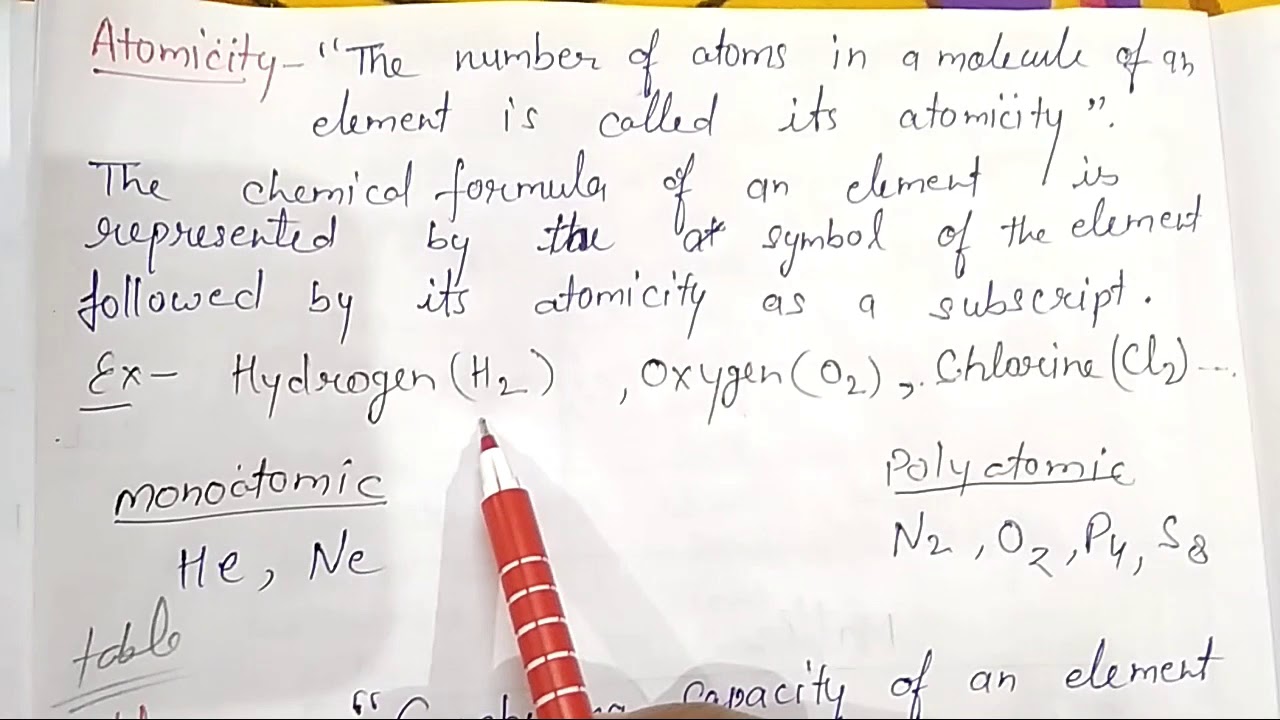 Atomicity - "The number of atoms in a molecule of an
element is called its atomicity".
The chemical formula of an element is
represented by the symbol of the element
followed by its atomicity as a subscript.
Ex - Hydrogen (H2) , Oxygen (O2) , Chlorine (Cl2) ...
monoatomic Polyatomic
He, Ne N2, O2, P4, S8
table
" capacity of an element